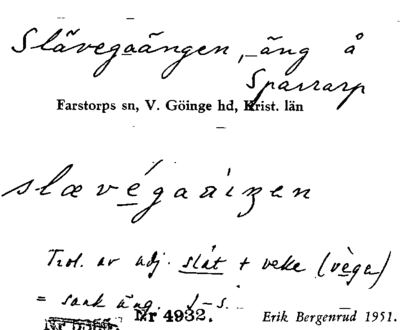 Slävegaängen, äng å
Sparrarp
Farstorps sn, V. Göinge hd, Krist. län
slævégaäiʒen
Trol. av adj. slät + veke (vèga)
= sank äng. J-s.
Nr 4932. Erik Bergenrud 1951.